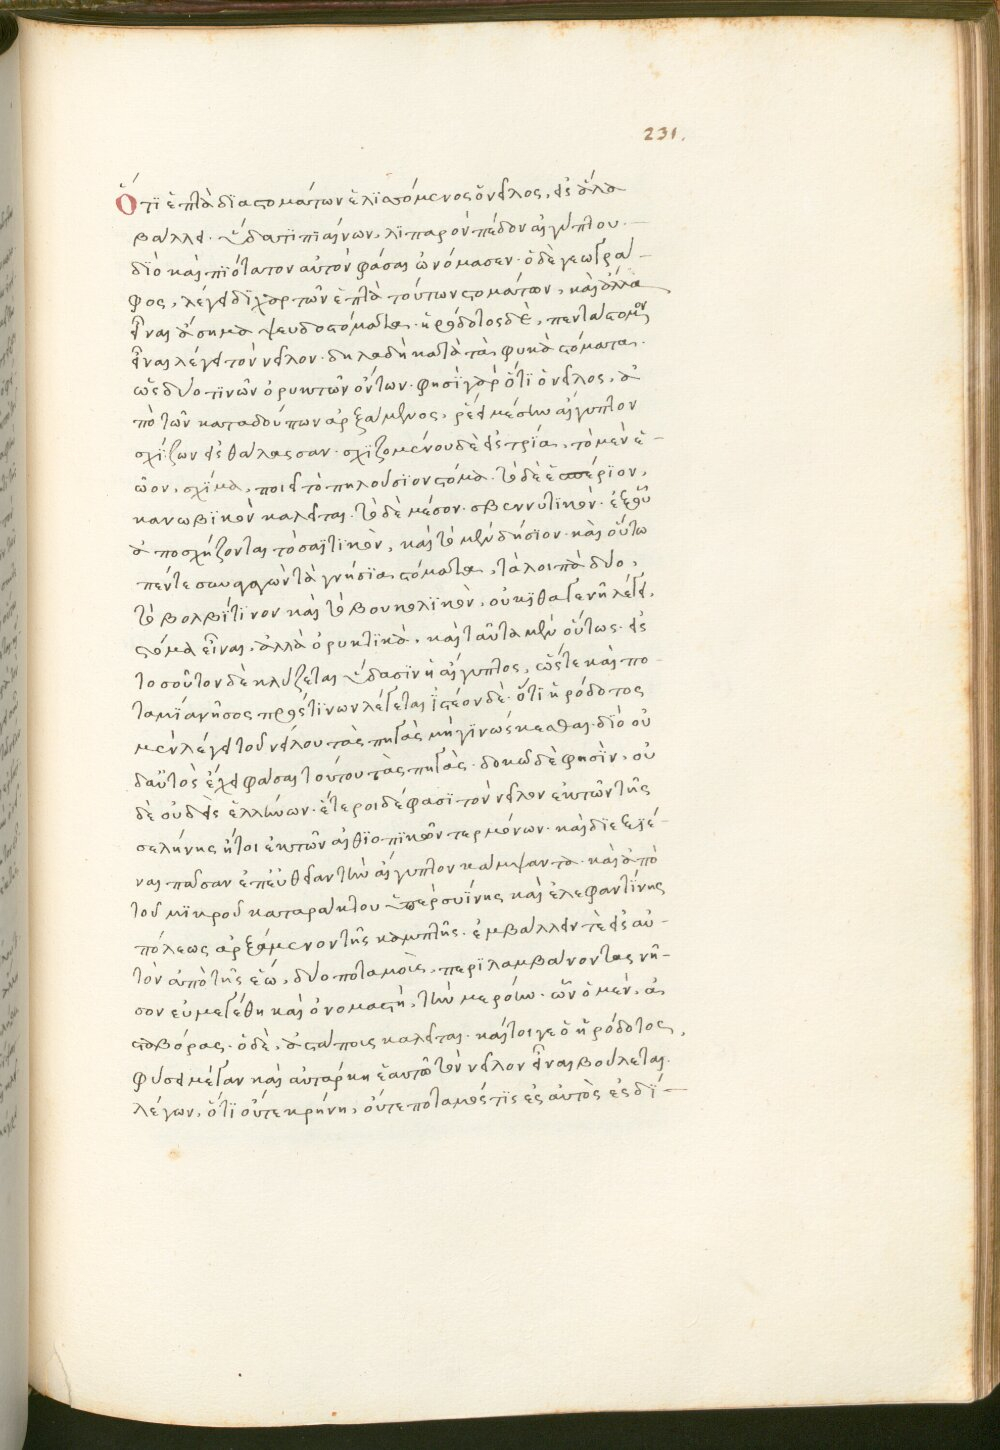 231.
Ὅτι ἑπτὰ διὰ στομάτων ἑλισσόμενος ὁ νεῖλος, εἰς ἅλα
βάλλει. ὕδατι πιαίνων, λιπαρὸν πέδον αἰγύπτου.
διὸ καὶ πιότατον αὐτὸν φάσαι ὠνόμασεν. ὁ δὲ γεωγρά
φος, λέγει δίχα τῶν ἑπτὰ τούτων στομάτων, καὶ ἄλλα
εἶναι ἄσημα ψευδοστόματα. ἡρόδοτος δὲ, πεντάστομον
εἶναι λέγει τὸν νεῖλον. δηλαδὴ κατὰ τὰ φυσικὰ στόματα.
ὡς δύο τινῶν ὀρυκτῶν ὄντων. φησὶ γὰρ ὅτι ὁ νεῖλος, ἀ
πὸ τῶν καταδούπων ἀρξάμενος, ῥέει μέσην αἴγυπτον
σχίζων εἰς θάλασσαν. σχιζομένου δὲ εἰς τρία, τὸ μὲν ἑ
ῶον, σχίμα, ποιεῖ τὸ πηλούσιον στόμα. τὸ δὲ ἑσπέριον,
κανωβικὸν καλεῖται. τὸ δὲ μέσον. σβεννυτικὸν. ἐξ οὗ
ἀποσχίζονται τὸ σαϊτικὸν, καὶ τὸ μενδήσιον. καὶ οὕτω
πέντε συναγαγὼν τὰ γνήσια στόματα, τὰ λοιπὰ δύο,
τὸ βολβίτινον καὶ τὸ βουκολικὸν, οὐκ ἰθαγενῆ λέγει,
στόμα εἶναι, ἀλλὰ ὀρυκτικὰ, καὶ ταῦτα μὲν οὕτως. εἰς
τοσοῦτον δὲ κλύζεται ὕδασιν ἡ αἴγυπτος, ὥστε καὶ πο
ταμία νῆσος πρός τινων λέγεται ἰστέον δὲ. ὅτι ἡρόδοτος
μὲν λέγει τοῦ νείλου τὰς πηγὰς μὴ γινώσκεσθαι. διὸ οὐ
δαὐτὸς ἔχει φάσαι τούτου τὰς πηγὰς. δοκῶ δὲ φησὶν, οὐ
δὲ οὐδεὶς ἑλλήνων. ἕτεροι δέ φασι τὸν νεῖλον ἐκ τῶν τῆς
σελήνης ἤτοι ἐκ τῶν αἰθιοπικῶν τερμόνων. καὶ διεξιέ
ναι πᾶσαν ἐπ' εὐθείαν τὴν αἴγυπτον κάμψαντα. καὶ ἀπὸ
τοῦ μικροῦ καταράκτου ὑπὲρ συίνης καὶ ἐλεφαντίνης
πόλεως ἀρξάμενον τῆς καμπτῆς. ἐμβάλλειν τὲ εἰς αὐ
τὸν ἀπὸ τῆς ἑώ, δύο ποταμοὺς, περιλαμβάνοντας νῆ
σον εὐμεγέθη καὶ ὀνομαστὴ, τὴν μερόην. ὧν ὁ μὲν, ἀ
σταβόρας. ὁ δὲ, ἀστάποις καλεῖται. καίτοιγε ὁ ἡρόδοτος,
φύσει μέγαν καὶ αὐτάρκη ἑαυτῶ τὸν νεῖλον εἶναι βούλεται.
λέγων, ὅτι οὔτε κρήνη, οὔτε ποταμός τις ἐς αὐτὸς ἐς δι